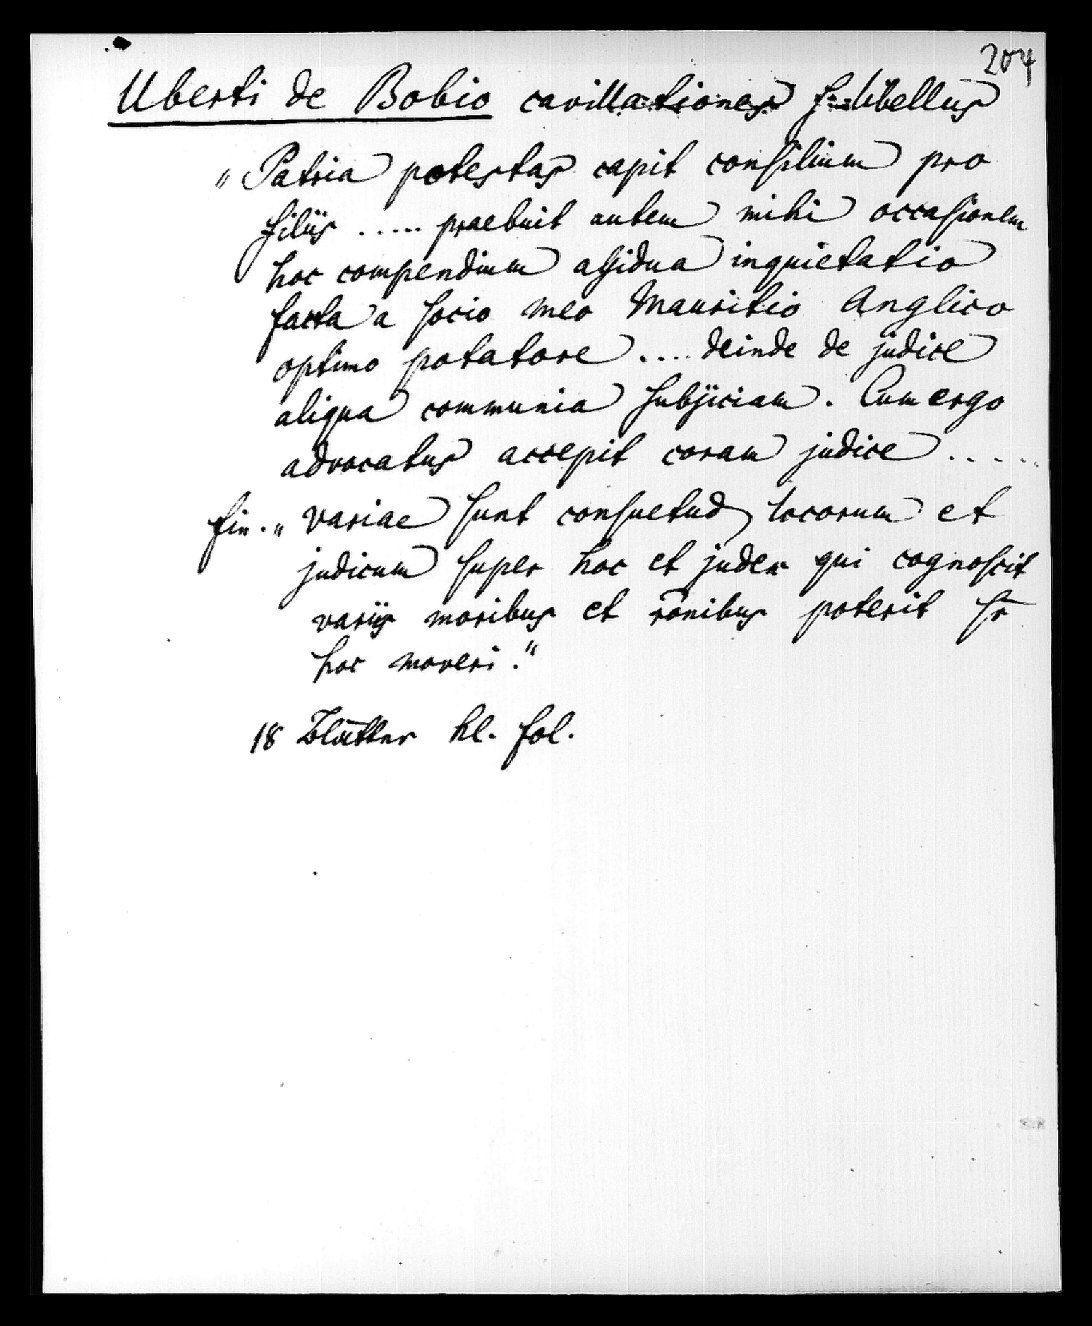 204
Uberti de Bobio cavillationes s. libellus
„Patria potestas capit consilium pro
filiis ..... praebuit autem mihi occasionem
hoc compendium assidua inquietatio
facta a socio meo Mauritio Anglico
optimo potatore .... deinde de judice
aliqua communia subjiciam. Cum ergo
advocatus accepit coram judice .....
fin. „variae sunt consuetud locorum et
judicum super hoc et judex qui cognoscit
variis moribus et rōnibus poterit sr̄
hoc moveri."
18 Blätter kl. fol.